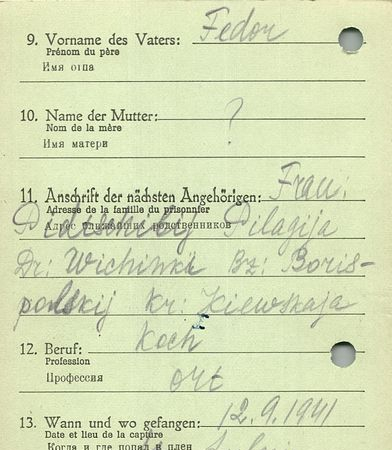 9. Vorname des Vaters: Fedor
Prénom du père
Имя отца
10. Name der Mutter: ?
Nom de la mère
Имя матери
11. Anschrift der nächsten Angehörigen: Frau:
Adresse de la famille du prisonnier
Адрес ближайших родственников Pilagija
Dr: Wichinki Bz: Boris-
polskij Kr: Kiewskaja
12. Beruf: Koch
Profession
Профессия ort
13. Wann und wo gefangen: 12.9.1941
Date et lieu de la capture
Когда и где попал в плен